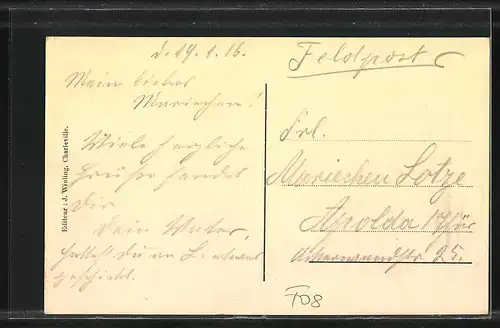 d. 19.1.16.
Mein liebes
Mariechen!
Viele herzliche
Grüße sendet
Dir
Dein Vater,
hattest du an L. etwas
geschickt.
Editeur : J. Winling, Charleville.
Feldpost
Frl.
Mariechen Lotze
Apolda i/Thür
25.
F08